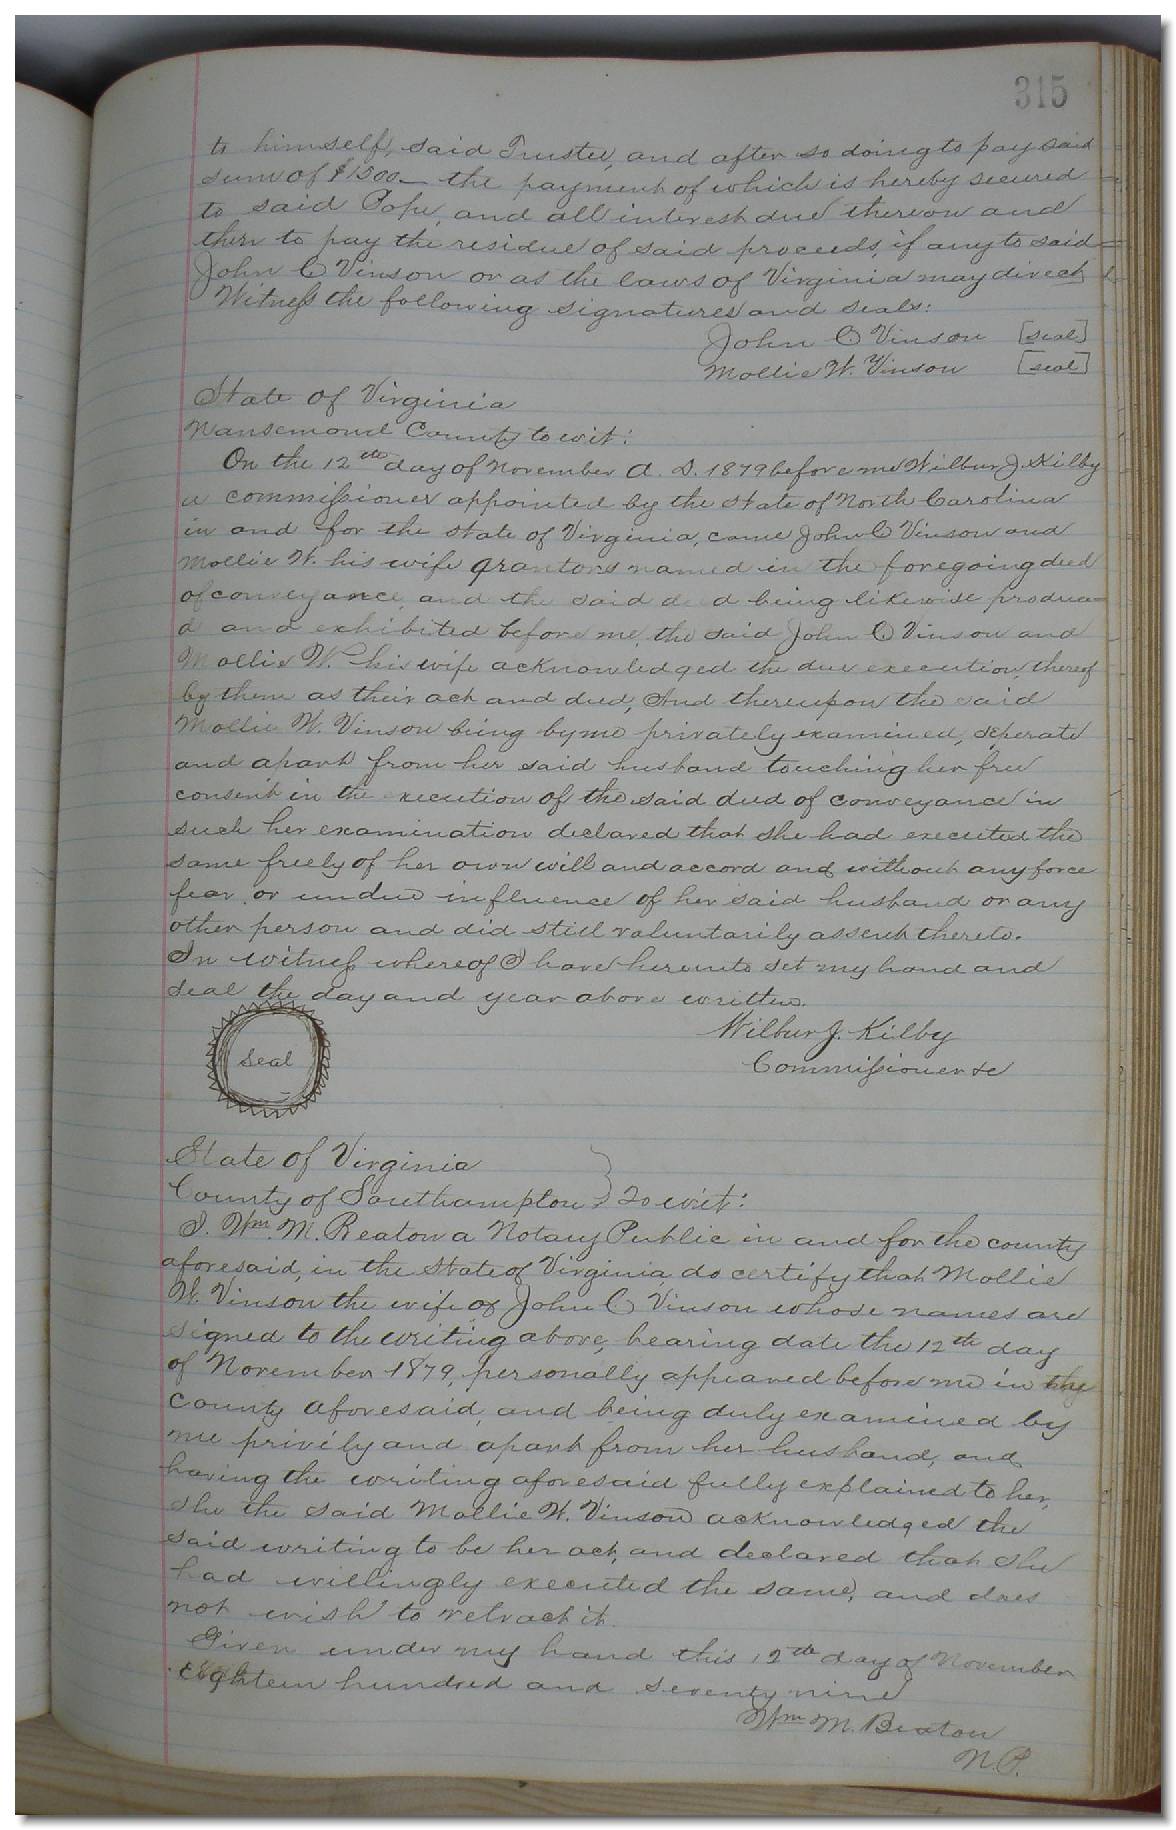 315
to himself, said Trustee, and after so doing to pay said
sum of $1500 — the payment of which is hereby secured
to said Pope, and all interest due thereon and
then to pay the residue of said proceeds, if any to said
John C Vinson or as the laws of Virginia may direct
Witness the following signatures and seals:
John C Vinson [seal]
Mollie W. Vinson [seal]
State of Virginia
Nansemond County to wit:
On the 12th day of November A. D. 1879 before me Wilbur J. Kilby
a commissioner appointed by the State of North Carolina
in and for the State of Virginia, came John C Vinson and
Mollie W. his wife grantors named in the foregoing deed
of conveyance, and the said deed being likewise produce-
d and exhibited before me, the said John C Vinson and
Mollie W. his wife acknowledged the due execution thereof
by them as their act and deed, And thereupon the said
Mollie W. Vinson being by me privately examined, seperate
and apart from her said husband touching her free
consent in the execution of the said deed of conveyance in
such her examination declared that she had executed the
same freely of her own will and accord and without any force
fear, or undue influence of her said husband or any
other person and did still voluntarily assent thereto.
In witness whereof I have hereunto set my hand and
seal the day and year above written.
Wilbur J. Kilby
Seal
Commissioner &c
State of Virginia
County of Southampton } To wit:
I, Wm. M. Beaton a Notary Public in and for the county
aforesaid, in the State of Virginia, do certify that Mollie
W. Vinson the wife of John C Vinson whose names are
signed to the writing above, bearing date the 12th day
of November 1879, personally appeared before me in the
county aforesaid, and being duly examined by
me privily and apart from her husband, and
having the writing aforesaid fully explained to her,
she the said Mollie W. Vinson acknowledged the
said writing to be her act, and declared that she
had willingly executed the same, and does
not wish to retract it.
Given under my hand this 12th day of November
Eighteen hundred and seventy nine
Wm M. Beaton
N. P.